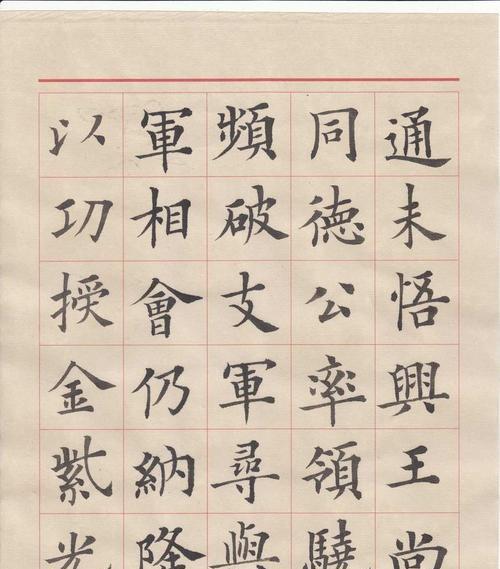 通未悟興王尚
同徳公率領驍
頻破支軍尋與
軍相會仍納隆
以功授金紫光